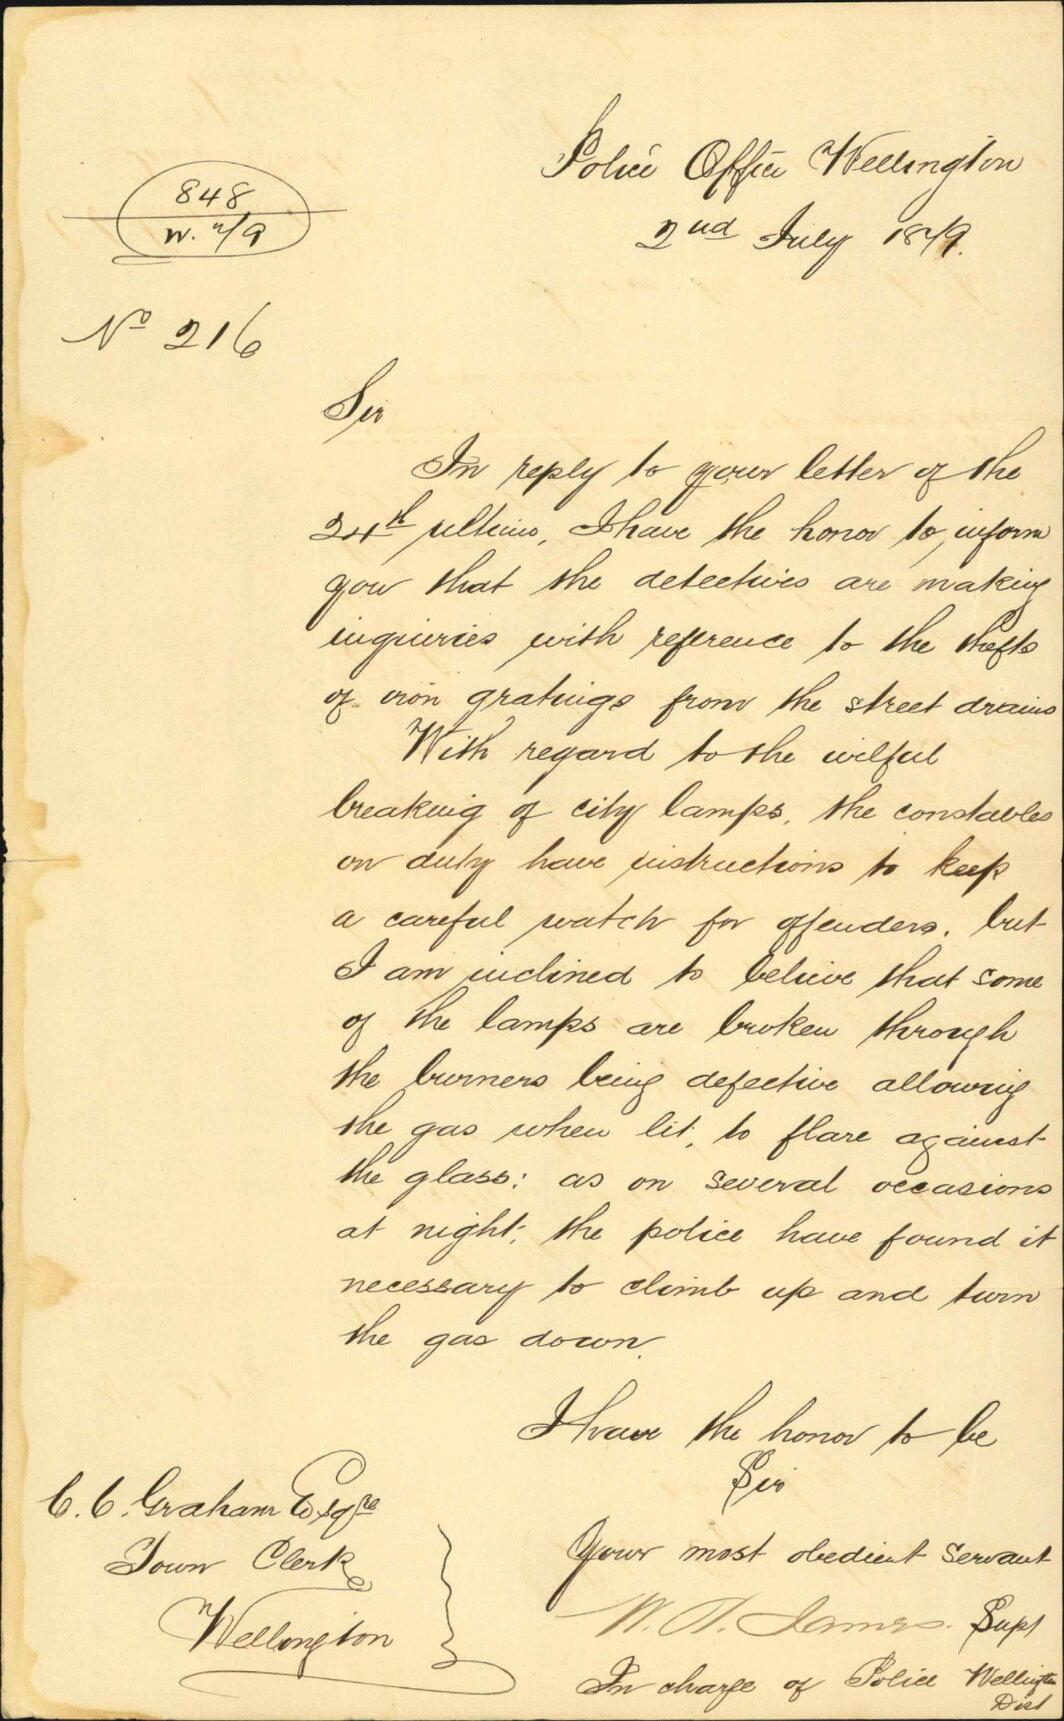 Police Office Wellington
2nd July 1879.
848
W. 7/9
No 216
Sir
In reply to your letter of the
24th ultimo, I have the honor to, inform
you that the detectives are making
inquiries with reference to the thefts
of iron gratings from the street drains
With regard to the wilful
breaking of city lamps, the constables
on duty have instructions to keep
a careful watch for offenders, but
I am inclined to believe that some
of the lamps are broken through
the burners being defective allowing
the gas when lit, to flare against
the glass; as on several occasions
at night; the police have found it
necessary to climb up and turn
the gas down.
I have the honor to be
Sir
Your most obedient Servant
W. James. Supt
In charge of Police Wellington
Dist
C. C. Graham Esqre
Town Clerk
Wellington